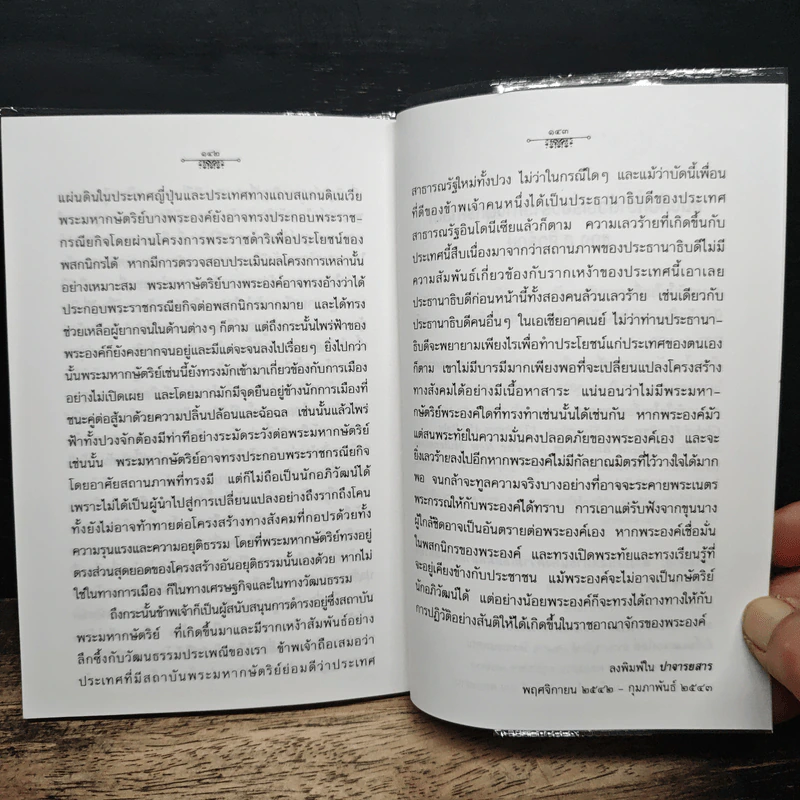 ๑๔๒
แผ่นดินในประเทศญี่ปุ่นและประเทศทางแถบสแกนดิเนเวีย
พระมหากษัตริย์บางพระองค์ยังอาจทรงประกอบพระราช-
กรณียกิจโดยผ่านโครงการพระราชดำริเพื่อประโยชน์ของ
พสกนิกรได้ หากมีการตรวจสอบประเมินผลโครงการเหล่านั้น
อย่างเหมาะสม พระมหากษัตริย์บางพระองค์อาจทรงอ้างว่าได้
ประกอบพระราชกรณียกิจต่อพสกนิกรมากมาย และได้ทรง
ช่วยเหลือผู้ยากจนในด้านต่างๆ ก็ตาม แต่ถึงกระนั้นไพร่ฟ้าของ
พระองค์ก็ยังคงยากจนอยู่และมีแต่จะจนลงไปเรื่อยๆ ยิ่งไปกว่า
นั้นพระมหากษัตริย์เช่นนี้ยังทรงมักเข้ามาเกี่ยวข้องกับการเมือง
อย่างไม่เปิดเผย และโดยมากมักมีจุดยืนอยู่ข้างนักการเมืองที่
ชนะคู่ต่อสู้มาด้วยความปลิ้นปล้อนและฉ้อฉล เช่นนั้นแล้วไพร่
ฟ้าทั้งปวงจักต้องมีท่าทีอย่างระมัดระวังต่อพระมหากษัตริย์
เช่นนั้น พระมหากษัตริย์อาจทรงประกอบพระราชกรณียกิจ
โดยอาศัยสถานภาพที่ทรงมี แต่ก็ไม่ถือเป็นนักอภิวัฒน์ได้
เพราะไม่ได้เป็นผู้นำไปสู่การเปลี่ยนแปลงอย่างถึงรากถึงโคน
ทั้งยังไม่อาจท้าทายต่อโครงสร้างทางสังคมที่กอปรด้วยทั้ง
ความรุนแรงและความอยุติธรรม โดยที่พระมหากษัตริย์ทรงอยู่
ตรงส่วนสุดยอดของโครงสร้างอันอยุติธรรมนั้นเองด้วย หากไม่
ใช่ในทางการเมือง ก็ในทางเศรษฐกิจและในทางวัฒนธรรม
ถึงกระนั้นข้าพเจ้าก็เป็นผู้สนับสนุนการดำรงอยู่ซึ่งสถาบัน
พระมหากษัตริย์ ที่เกิดขึ้นมาและมีรากเหง้าสัมพันธ์อย่าง
ลึกซึ้งกับวัฒนธรรมประเพณีของเรา ข้าพเจ้าถือเสมอว่า
ประเทศที่มีสถาบันพระมหากษัตริย์ย่อมดีกว่าประเทศ
๑๔๓
สาธารณรัฐใหม่ทั้งปวง ไม่ว่าในกรณีใดๆ และแม้ว่าบัดนี้เพื่อน
ที่ดีของข้าพเจ้าคนหนึ่งได้เป็นประธานาธิบดีของประเทศ
สาธารณรัฐอินโดนีเซียแล้วก็ตาม ความเลวร้ายที่เกิดขึ้นกับ
ประเทศนี้สืบเนื่องมาจากว่าสถานภาพของประธานาธิบดีไม่มี
ความสัมพันธ์เกี่ยวข้องกับรากเหง้าของประเทศนี้เอาเลย
ประธานาธิบดีก่อนหน้านี้ทั้งสองคนล้วนเลวร้าย เช่นเดียวกับ
ประธานาธิบดีคนอื่นๆ ในเอเชียอาคเนย์ ไม่ว่าท่านประธานา-
ธิบดีจะพยายามเพียงไรเพื่อทำประโยชน์แก่ประเทศของตนเอง
ก็ตาม เขาไม่มีบารมีมากเพียงพอที่จะเปลี่ยนแปลงโครงสร้าง
ทางสังคมได้อย่างมีเนื้อหาสาระ แน่นอนว่าไม่มีพระมหา-
กษัตริย์พระองค์ใดที่ทรงทำเช่นนั้นได้เช่นกัน หากพระองค์มัว
แต่สนพระทัยในความมั่นคงปลอดภัยของพระองค์เอง และจะ
ยิ่งเลวร้ายลงไปอีกหากพระองค์ไม่มีกัลยาณมิตรที่ไว้วางใจได้มาก
พอ จนกล้าจะทูลความจริงบางอย่างที่อาจจะระคายพระเนตร
พระกรรณให้กับพระองค์ได้ทราบ การเอาแต่รับฟังจากขุนนาง
ผู้ใกล้ชิดอาจเป็นอันตรายต่อพระองค์เอง หากพระองค์เชื่อมั่น
ในพสกนิกรของพระองค์ และทรงเปิดพระทัยและทรงเรียนรู้ที่
จะอยู่เคียงข้างกับประชาชน แม้พระองค์จะไม่อาจเป็นกษัตริย์
นักอภิวัฒน์ได้ แต่อย่างน้อยพระองค์ก็จะทรงได้ถางทางให้กับ
การปฏิวัติอย่างสันติให้ได้เกิดขึ้นในราชอาณาจักรของพระองค์
ลงพิมพ์ใน ปาจารยสาร
พฤศจิกายน ๒๕๔๒ – กุมภาพันธ์ ๒๕๔๓